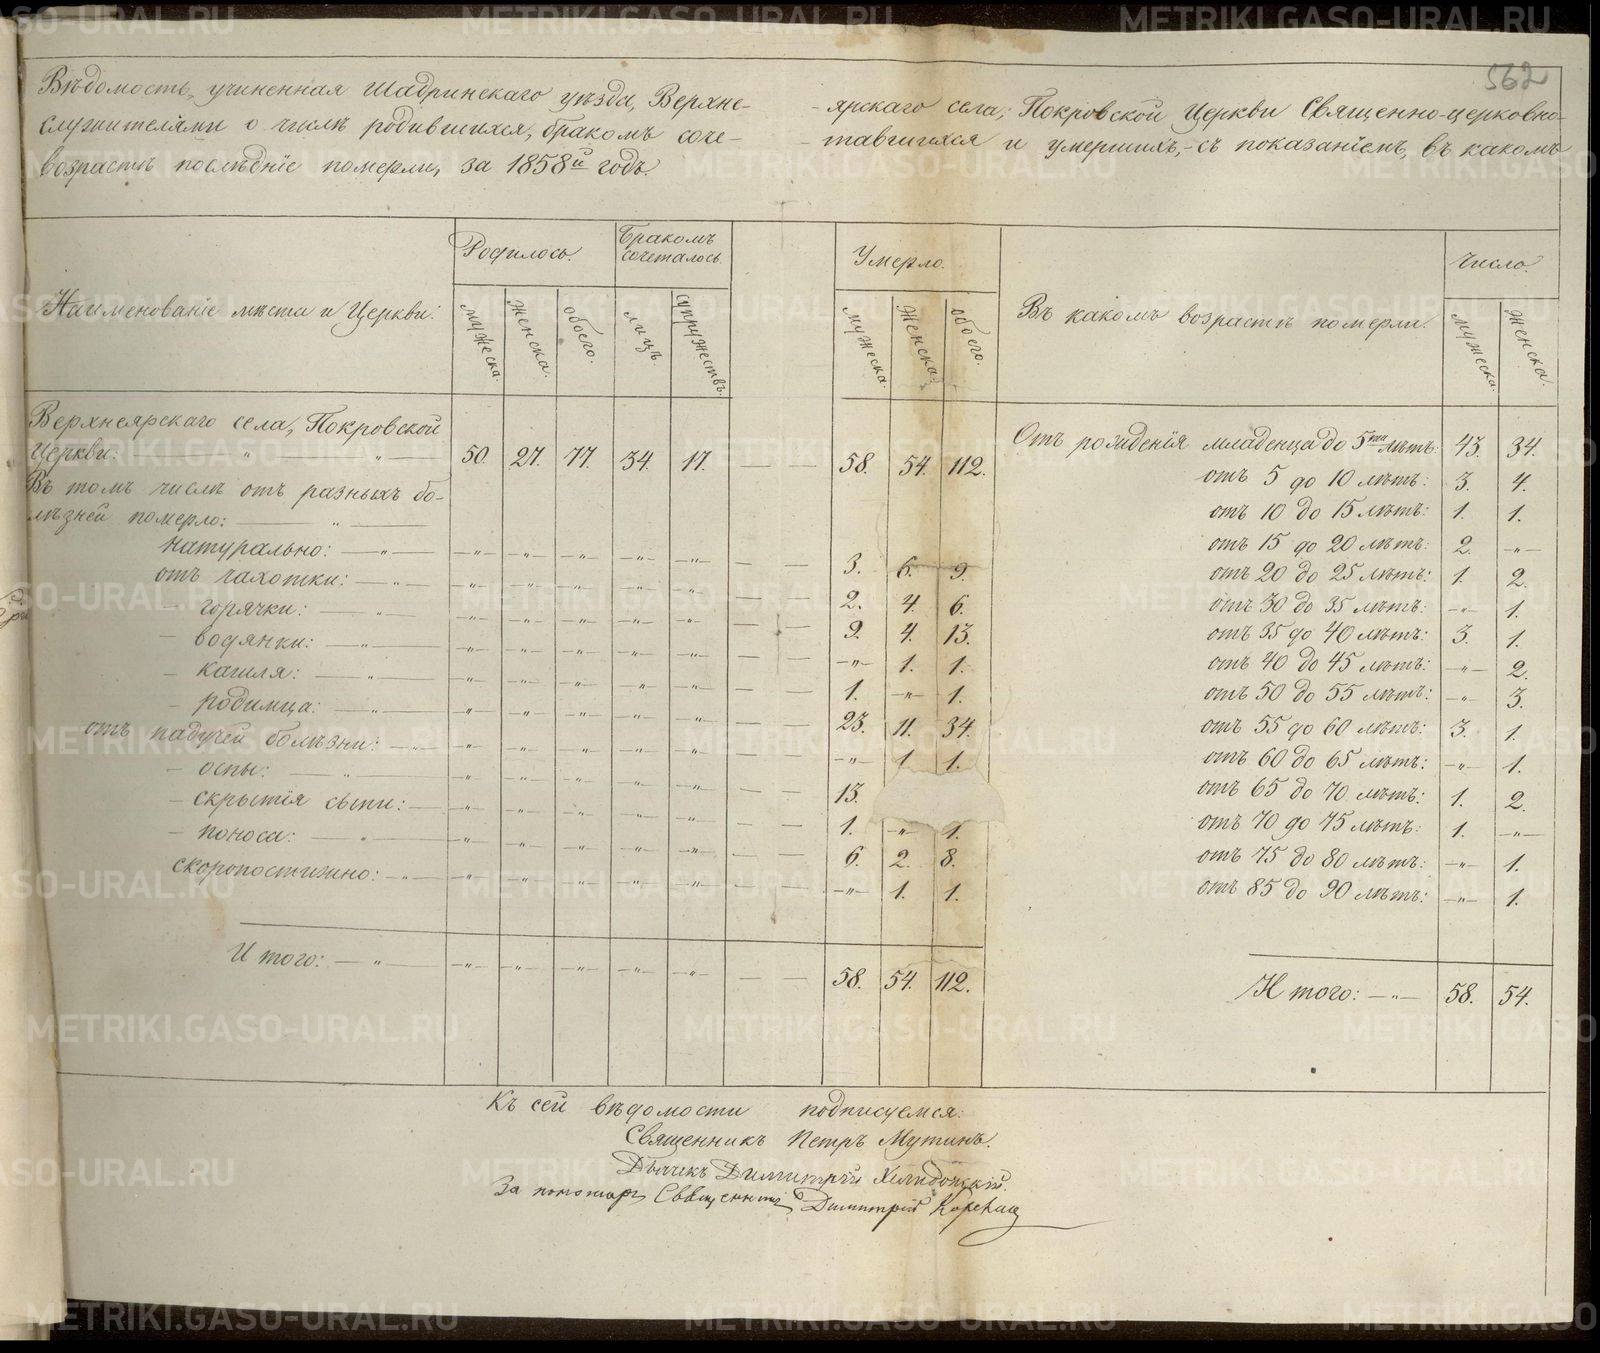 562
Вѣдомость, учиненная Шадринскаго уѣзда, Верхне- -ярскаго села, Покровской Церкви Священно-церковно-
служителями о числѣ родившихся, бракомъ соче- -тавшихся и умершихъ, - съ показаніемъ, въ какомъ
возрастѣ послѣдніе померли, за 1858й годъ.
Наименованіе мѣста и Церкви:
Родилось. Бракомъ сочеталось.
мужеска. женска. обоего. лицъ. супружествъ.
Умерло.
мужеска. женска. обоего.
Въ какомъ возрастѣ померли.
Число.
мужеска. женска.
Верхнеярскаго села, Покровской
Церкви: — „ — „ — 50. 27. 77. 34. 17. — — 58. 54. 112.
Въ томъ числѣ отъ разныхъ бо-
лѣзней померло: — „ —
натурально: — „ — — „ — — „ — — „ — — „ — — „ — — — 3. 6. 9.
отъ чахотки: — „ — — „ — — „ — — „ — — „ — — „ — — — 2. 4. 6.
— горячки: — „ — — „ — — „ — — „ — — „ — — „ — — — 9. 4. 13.
— водянки: — „ — — „ — — „ — — „ — — „ — — „ — — — — „ — 1. 1.
— кашля: — „ — — „ — — „ — — „ — — „ — — „ — — — 1. — „ — 1.
— родимца: — „ — — „ — — „ — — „ — — „ — — „ — — — 23. 11. 34.
отъ падучей болѣзни: — „ — — „ — — „ — — „ — — „ — — „ — — — — „ — 1 1.
— оспы: — „ — — „ — — „ — — „ — — „ — — „ — — — 13.
— скрытія сыпи: — — „ — — „ — — „ — — „ — — „ — — — 1. — „ — 1.
— поноса: — „ — — „ — — „ — — „ — — „ — — „ — — — 6. 2. 8.
скоропостижно: — „ — — „ — — „ — — „ — — „ — — „ — — — — „ — 1. 1.
Итого: — „ — — „ — — „ — — „ — — „ — — „ — — — 58. 54. 112.
Отъ рожденія младенца до 5ти лѣтъ: 43. 34.
отъ 5 до 10 лѣтъ: 3. 4.
отъ 10 до 15 лѣтъ: 1. 1.
отъ 15 до 20 лѣтъ: 2. — „ —
отъ 20 до 25 лѣтъ: 1. 2.
отъ 30 до 35 лѣтъ: — „ — 1.
отъ 35 до 40 лѣтъ: 3. 1.
отъ 40 до 45 лѣтъ: — „ — 2.
отъ 50 до 55 лѣтъ: — „ — 3.
отъ 55 до 60 лѣтъ: 3. 1.
отъ 60 до 65 лѣтъ: — „ — 1.
отъ 65 до 70 лѣтъ: 1. 2.
отъ 70 до 75 лѣтъ: 1. — „ —
отъ 75 до 80 лѣтъ: — „ — 1.
отъ 85 до 90 лѣтъ: — „ — 1.
Итого: — „ — 58. 54.
Къ сей вѣдомости подписуемся:
Священникъ Петръ Мутинъ.
Дьячекъ Димитрій Хелидонскій.
За пономаря Священникъ Димитрій
METRIKI.GASO-URAL.RU